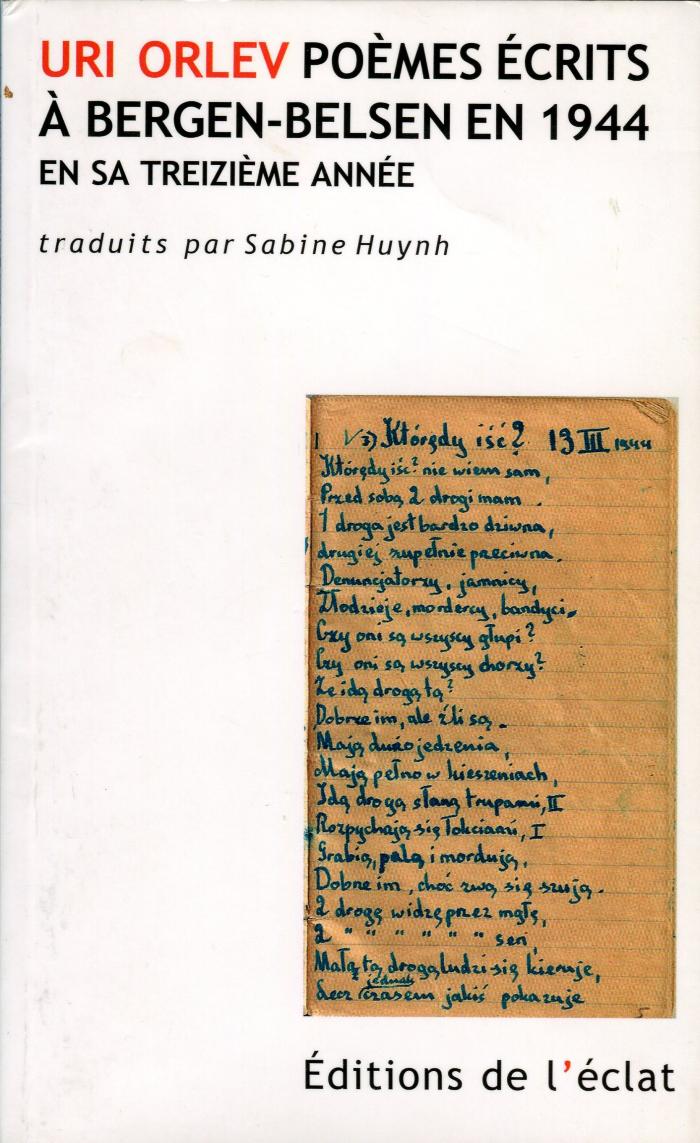 URI ORLEV POÈMES ÉCRITS
À BERGEN-BELSEN EN 1944
EN SA TREIZIÈME ANNÉE
traduits par Sabine Huynh
1 √3) Którędy iść? 13 III 1944
Którędy iść? nie wiem sam,
Przed sobą 2 drogi mam.
1 droga jest bardzo dziwna,
drugiej zupełnie przeciwna.
Denuncjatorzy, jamnicy,
Złodzieje, mordercy, bandyci.
Czy oni są wszyscy głupi?
Czy oni są wszyscy chorzy?
Że idą drogą tą?
Dobrze im, ale źli są.
Mają dużo jedzenia,
Mają pełno w kieszeniach,
Idą drogą słaną trupami, II
Rozpychają się łokciami, I
Grabią, palą i mordują,
Dobrze im, choć zwą się szują.
2 drogę widzę przez mgłę,
2 " " " " " " sen,
Małą tą drogą ludzi się kieruje,
jednak
Lecz czasem jakiś pokazuje
5
Éditions de l'éclat